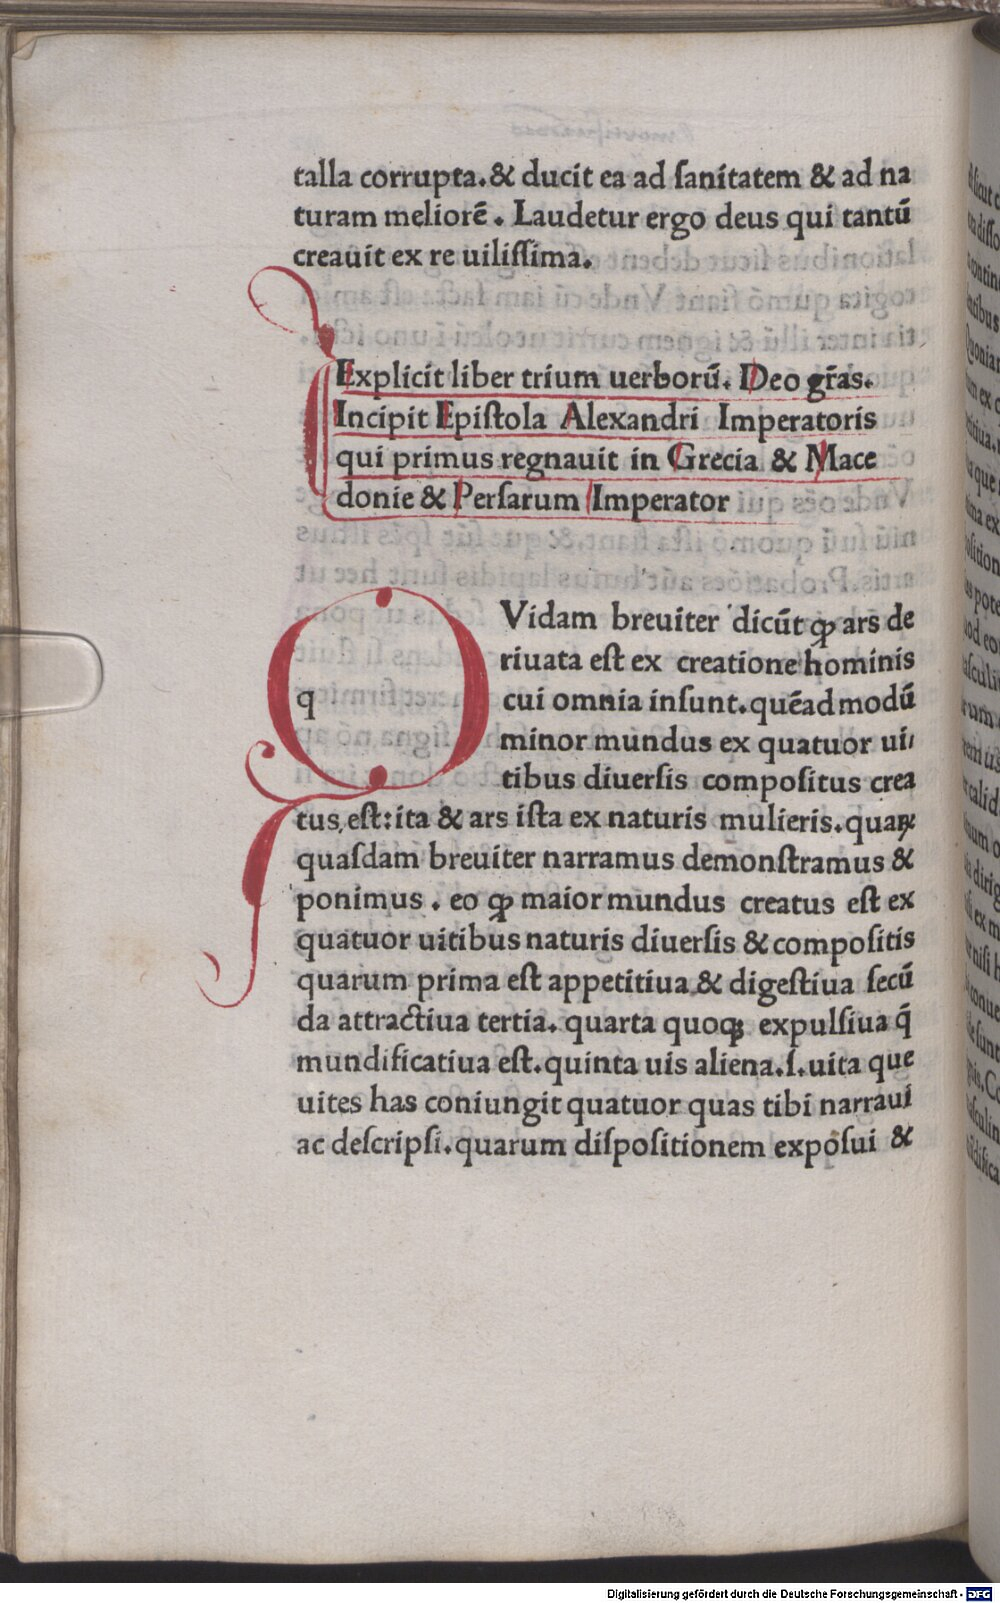 talla corrupta.& ducit ea ad ſanitatem & ad na
turam meliorē. Laudetur ergo deus qui tantū
creauit ex re uiliſſima.
Explicit liber trium uerborū. Deo gr̄as.
Incipit Epiſtola Alexandri Imperatoris
qui primus regnauit in Grecia & Mace
donie & Perſarum Imperator
Vidam breuiter dicūt ꝙ ars de
riuata eſt ex creatione hominis
q cui omnia inſunt.quēadmodū
minor mundus ex quatuor ui/
tibus diuerſis compoſitus crea
tus,eſt:ita & ars iſta ex naturis mulieris.quaꝝ
quaſdam breuiter narramus demonſtramus &
ponimus. eo ꝙ maior mundus creatus eſt ex
quatuor uitibus naturis diuerſis & compoſitis
quarum prima eſt appetitiua & digeſtiua ſecū
da attractiua tertia. quarta quoqꝫ expulſiua q̄
mundificatiua eſt.quinta uis aliena.ſ.uita que
uites has coniungit quatuor quas tibi narraui
ac deſcripſi.quarum diſpoſitionem expoſui &
Digitalisierung gefördert durch die Deutsche Forschungsgemeinschaft - DFG